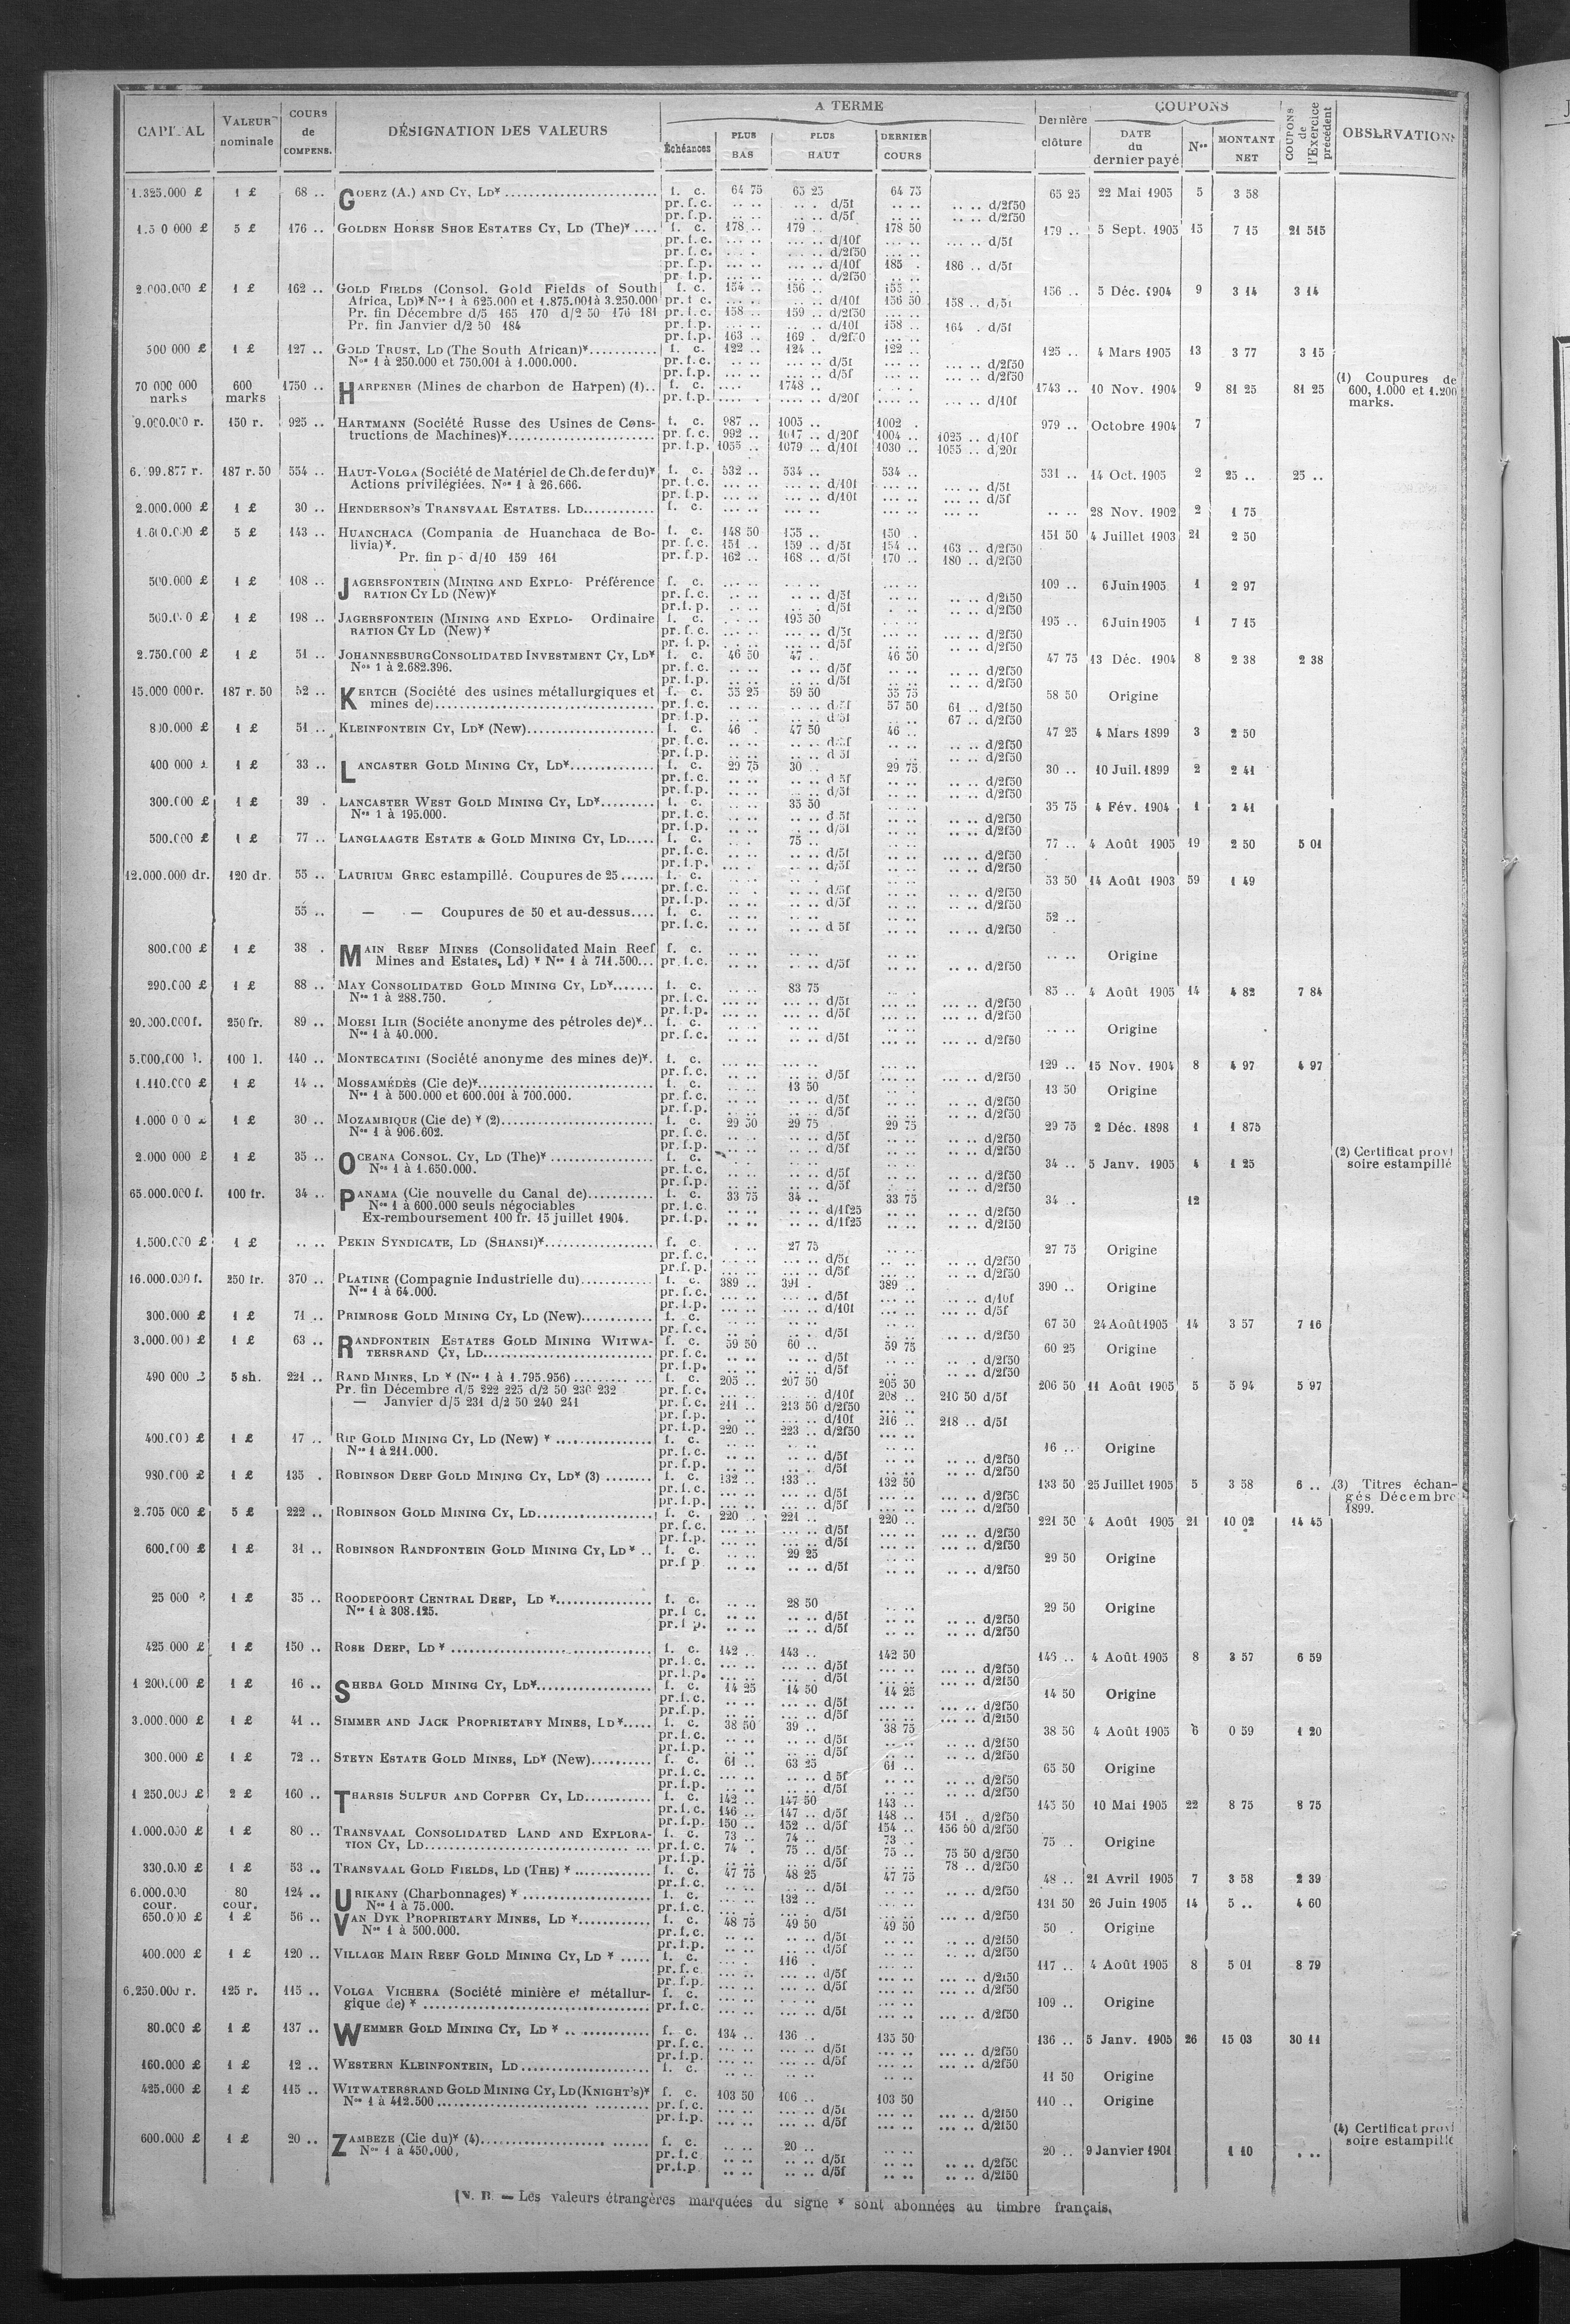 CAPITAL VALEUR nominale COURS de COMPENS. DÉSIGNATION DES VALEURS A TERME Échéances PLUS BAS PLUS HAUT DERNIER COURS Dernière clôture COUPONS DATE du dernier payé Nos MONTANT NET COUPONS de l'Exercice précédent OBSERVATIONS
1.325.000 £ 1 £ 68 .. GOERZ (A.) AND CY, LD* f. c. 64 75 65 25 64 75 65 25 22 Mai 1905 5 3 58
pr. f. c. .. .. .. . d/5f .. .. .. .. d/2f50
pr. f. p. .. .. .. .. d/5f .. .. .. .. d/2f50
5 £ 176 .. GOLDEN HORSE SHOE ESTATES CY, LD (The)* .... f. c. 178 .. 179 .. 178 50 179 .. 5 Sept. 1905 15 7 15 21 515
pr. f. c. ... .. ... .. d/10f ... .. ... .. d/5f
pr. f. c. ... .. ... .. d/2f50 ... ..
pr. f. p. ... .. ... .. d/10f 185 . 186 .. d/5f
pr. f. p. ... .. ... .. d/2f50 ... ..
2.000.000 £ 1 £ 162 .. GOLD FIELDS (Consol. Gold Fields of South f. c. 154 .. 156 .. 155 .. 156 .. 5 Déc. 1904 9 3 14 3 14
Africa, LD)* Nos 1 à 625.000 et 1.875.001 à 3.250.000 pr. f. c. ... .. ... .. d/10f 156 50 158 .. d/5f
Pr. fin Décembre d/5 165 170 d/2 50 176 181 pr. f. c. 158 .. 159 .. d/2f50 ... ..
Pr. fin Janvier d/2 50 184 pr. f. p. ... .. ... .. d/10f 158 .. 164 . d/5f
pr. f. p. 163 .. 169 . d/2f50 ... ..
500 000 £ 1 £ 127 .. GOLD TRUST, LD (The South African)* f. c. 122 .. 124 .. 122 .. 125 .. 4 Mars 1905 13 3 77 3 15
Nos 1 à 250.000 et 750.001 à 1.000.000. pr. f. c. ... .. ... .. d/5f ... .. ... .. d/2f50
pr. f. p. ... .. ... .. d/5f ... .. ... .. d/2f50
70 000 000 marks 600 marks 1750 .. HARPENER (Mines de charbon de Harpen) (1).. f. c. .... 1748 .. 1743 .. 10 Nov. 1904 9 81 25 81 25 (1) Coupures de 600, 1.000 et 1.200 marks.
pr. f. p. .... .... .. d/20f ... .. d/10f
9.000.000 r. 150 r. 925 .. HARTMANN (Société Russe des Usines de Cons- f. c. 987 .. 1003 .. 1002 . 979 .. Octobre 1904 7
tructions de Machines)* pr. f. c. 992 .. 1017 .. d/20f 1004 .. 1025 .. d/10f
pr. f. p. 1055 .. 1079 .. d/10f 1030 .. 1055 .. d/20f
187 r. 50 554 .. HAUT-VOLGA (Société de Matériel de Ch. de fer du)* f. c. 532 .. 534 .. 534 .. 531 .. 14 Oct. 1905 2 25 .. 25 ..
Actions privilégiées. Nos 1 à 26.666. pr. f. c. ... .. ... .. d/10f ... .. ... .. d/5f
pr. f. p. ... .. ... .. d/10f ... .. ... .. d/5f
2.000.000 £ 1 £ 30 .. HENDERSON'S TRANSVAAL ESTATES. LD f. c. ... .. ... .. ... .. .. .. 28 Nov. 1902 2 1 75
1.600.000 £ 5 £ 143 .. HUANCHACA (Compania de Huanchaca de Bo- f. c. 148 50 155 .. 150 . 151 50 4 Juillet 1903 21 2 50
livia)*. pr. f. c. 151 .. 159 .. d/5f 154 .. 163 .. d/2f50
Pr. fin p. d/10 159 161 pr. f. p. 162 .. 168 .. d/5f 170 .. 180 .. d/2f50
500.000 £ 1 £ 108 .. JAGERSFONTEIN (MINING AND EXPLO- Préférence f. c. 109 .. 6 Juin 1905 1 2 97
RATION CY LD (New)* pr. f. c. .. .. d/5f .. .. d/2f50
pr. f. p. .. .. d/5f .. .. d/2f50
500.000 £ 1 £ 198 .. JAGERSFONTEIN (MINING AND EXPLO- Ordinaire f. c. 195 50 195 .. 6 Juin 1905 1 7 15
RATION CY LD (New)* pr. f. c. ... .. d/5f ... .. d/2f50
pr. f. p. ... .. d/5f ... .. d/2f50
2.750.000 £ 1 £ 51 .. JOHANNESBURG CONSOLIDATED INVESTMENT CY, LD* f. c. 46 50 47 . 46 50 47 75 13 Déc. 1904 8 2 38 2 38
Nos 1 à 2.682.396. pr. f. c. .. .. d/5f .. .. d/2f50
pr. f. p. .. .. d/5f .. .. d/2f50
15.000 000 r. 187 r. 50 52 .. KERTCH (Société des usines métallurgiques et f. c. 55 25 59 50 55 75 58 50 Origine
mines de) pr. f. c. .. .. d/5f 57 50 61 .. d/2f50
pr. f. p. .. .. d/5f .. .. 67 .. d/2f50
800.000 £ 1 £ 51 .. KLEINFONTEIN CY, LD* (New) f. c. 46 . 47 50 46 .. 47 25 4 Mars 1899 3 2 50
pr. f. c. .. .. d/5f .. .. d/2f50
pr. f. p. .. .. d/5f .. .. d/2f50
400 000 £ 1 £ 33 .. LANCASTER GOLD MINING CY, LD* f. c. 29 75 30 .. 29 75 30 .. 10 Juil. 1899 2 2 41
pr. f. c. .. .. d/5f .. .. d/2f50
pr. f. p. .. .. d/5f .. .. d/2f50
300.000 £ 1 £ 39 . LANCASTER WEST GOLD MINING CY, LD* f. c. 35 50 35 75 4 Fév. 1904 1 2 41
Nos 1 à 195.000. pr. f. c. .. .. d/5f .. .. d/2f50
pr. f. p. .. .. d/5f .. .. d/2f50
500.000 £ 1 £ 77 .. LANGLAAGTE ESTATE & GOLD MINING CY, LD f. c. 75 .. 77 .. 4 Août 1905 19 2 50 5 01
pr. f. c. .. .. d/5f ... .. d/2f50
pr. f. p. .. .. d/5f ... .. d/2f50
12.000.000 dr. 120 dr. 55 .. LAURIUM GREC estampillé. Coupures de 25 f. c. 53 50 14 Août 1903 59 1 49
pr. f. c. .. .. d/5f .. .. d/2f50
pr. f. p. .. .. d/5f .. .. d/2f50
55 .. — — Coupures de 50 et au-dessus.... f. c. 52 ..
pr. f. c. .. .. d 5f .. .. d/2f50
800.000 £ 1 £ 38 . MAIN REEF MINES (Consolidated Main Reef f. c. .. .. Origine
Mines and Estates, Ld) * Nos 1 à 711.500... pr. f. c. .. .. d/5f .. .. d/2f50
290.000 £ 1 £ 88 .. MAY CONSOLIDATED GOLD MINING CY, LD* f. c. 83 75 85 .. 4 Août 1905 14 4 82 7 84
Nos 1 à 288.750. pr. f. c. .. .. d/5f .. .. d/2f50
pr. f. p. .. .. d/5f .. .. d/2f50
20.000.000 f. 250 fr. 89 .. MOESI ILIR (Sociéte anonyme des pétroles de)*.. f. c. .. .. Origine
Nos 1 à 40.000. pr. f. c. .. .. d/5f .. .. d/2f50
5.000,000 l. 100 l. 140 .. MONTECATINI (Société anonyme des mines de)*. f. c. 129 .. 15 Nov. 1904 8 4 97 4 97
pr. f. c. .. .. d/5f ... .. d/2f50
1.110.000 £ 1 £ 14 .. MOSSAMÉDÈS (Cie de)* f. c. 13 50 13 50 Origine
Nos 1 à 500.000 et 600.001 à 700.000. pr. f. c. .. .. d/5f .. .. d/2f50
pr. f. p. .. .. d/5f .. .. d/2f50
1 £ 30 .. MOZAMBIQUE (Cie de) * (2) f. c. 29 50 29 75 29 75 29 75 2 Déc. 1898 1 1 875
Nos 1 à 906.602. pr. f. c. .. .. d/5f .. .. d/2f50
pr. f. p. .. .. d/5f .. .. d/2f50
2.000 000 £ 1 £ 35 .. OCEANA CONSOL. CY, LD (The)* f. c. 34 .. 5 Janv. 1905 4 1 25 (2) Certificat provi
Nos 1 à 1.650.000. pr. f. c. .. .. d/5f .. .. d/2f50 soire estampillé
pr. f. p. .. .. d/5f .. .. d/2f50
65.000.000 f. 100 fr. 34 .. PANAMA (Cie nouvelle du Canal de) f. c. 33 75 34 .. 33 75 34 . 12
Nos 1 à 600.000 seuls négociables pr. f. c. .. .. .. .. d/1f25 .. .. .. .. d/2f50
Ex-remboursement 100 fr. 15 juillet 1904. pr. f. p. .. .. .. .. d/1f25 .. .. .. .. d/2f50
1.500.000 £ 1 £ .. .. PEKIN SYNDICATE, LD (SHANSI)* f. c. 27 75 27 75 Origine
pr. f. c. .. .. d/5f .. .. d/2f50
pr. f. p. .. .. d/5f .. .. d/2f50
16.000.000 f. 250 fr. 370 .. PLATINE (Compagnie Industrielle du) f. c. 389 .. 391 . 389 .. 390 .. Origine
Nos 1 à 64.000. pr. f. c. ... .. d/5f ... .. d/10f
pr. f. p. ... .. d/10f ... .. d/5f
300.000 £ 1 £ 71 .. PRIMROSE GOLD MINING CY, LD (New) f. c. 67 50 24 Août 1905 14 3 57 7 16
pr. f. c. .. .. d/5f .. .. d/2f50
3.000.000 £ 1 £ 63 .. RANDFONTEIN ESTATES GOLD MINING WITWA- f. c. 59 50 60 .. 59 75 60 25 Origine
TERSRAND CY, LD pr. f. c. .. .. d/5f .. .. d/2f50
pr. f. p. .. .. d/5f .. .. d/2f50
490 000 5 sh. 221 .. RAND MINES, LD * (Nos 1 à 1.795.956) f. c. 205 .. 207 50 205 50 206 50 11 Août 1905 5 5 94 5 97
Pr. fin Décembre d/5 222 225 d/2 50 230 232 pr. f. c. ... .. d/10f 208 .. 210 50 d/5f
— Janvier d/5 231 d/2 50 240 241 pr. f. c. 211 .. 213 50 d/2f50 ... ..
pr. f. p. ... .. d/10f 216 .. 218 .. d/5f
pr. f. p. 220 .. 223 .. d/2f50 ... ..
400.000 £ 1 £ 17 .. RIP GOLD MINING CY, LD (New) * f. c. 16 .. Origine
Nos 1 à 211.000. pr. f. c. .. .. d/5f .. .. d/2f50
pr. f. p. .. .. d/5f .. .. d/2f50
1 £ 135 . ROBINSON DEEP GOLD MINING CY, LD* (3) f. c. 132 .. 133 .. 132 50 133 50 25 Juillet 1905 5 3 58 6 .. (3) Titres échan-
pr. f. c. ... .. d/5f ... .. d/2f50 gés Décembre
pr. f. p. ... .. d/5f ... .. d/2f50 1899.
2.705 000 £ 5 £ 222 .. ROBINSON GOLD MINING CY, LD f. c. 220 .. 221 .. 220 .. 221 50 4 Août 1905 21 10 02 14 45
pr. f. c. ... .. d/5f ... .. d/2f50
pr. f. p. ... .. d/5f ... .. d/2f50
600.000 £ 1 £ 31 .. ROBINSON RANDFONTEIN GOLD MINING CY, LD * .. f. c. 29 25 29 50 Origine
pr. f p. .. .. d/5f .. .. d/2f50
25 000 1 £ 35 .. ROODEPOORT CENTRAL DEEP, LD * f. c. 28 50 29 50 Origine
Nos 1 à 308.125. pr. f c. .. .. d/5f .. .. d/2f50
pr. f p. .. .. d/5f .. .. d/2f50
425 000 £ 1 £ 150 .. ROSE DEEP, LD * f. c. 142 .. 143 .. 142 50 143 .. 4 Août 1905 8 3 57 6 59
pr. f. c. ... .. d/5f ... .. d/2f50
pr. f. p. ... .. d/5f ... .. d/2f50
1 200.000 £ 1 £ 16 .. SHEBA GOLD MINING CY, LD* f. c. 14 25 14 50 14 25 14 50 Origine
pr. f. c. .. .. d/5f .. .. d/2f50
pr. f. p. .. .. d/5f .. .. d/2f50
3.000.000 £ 1 £ 41 .. SIMMER AND JACK PROPRIETARY MINES, LD* f. c. 38 50 39 .. 38 75 38 50 4 Août 1905 6 0 59 1 20
pr. f. c. .. .. d/5f .. .. d/2f50
pr. f. p. .. .. d/5f .. .. d/2f50
300.000 £ 1 £ 72 .. STEYN ESTATE GOLD MINES, LD* (New) f. c. 61 .. 63 25 61 .. 65 50 Origine
pr. f. c. .. .. d 5f .. .. d/2f50
pr. f. p. .. .. d/5f .. .. d/2f50
1 250.000 £ 2 £ 160 .. THARSIS SULFUR AND COPPER CY, LD f. c. 142 .. 147 50 143 .. 143 50 10 Mai 1905 22 8 75 8 75
pr. f. c. 146 .. 147 .. d/5f 148 .. 151 . d/2f50
pr. f. p. 150 .. 152 .. d/5f 154 .. 156 50 d/2f50
1.000.000 £ 1 £ 80 .. TRANSVAAL CONSOLIDATED LAND AND EXPLORA- f. c. 73 .. 74 .. 73 . 75 . Origine
TION CY, LD pr. f. c. 74 . 75 .. d/5f 75 .. 75 50 d/2f50
pr. f. p. .. .. .. .. d/5f .. .. 78 .. d/2f50
330.000 £ 1 £ 53 .. TRANSVAAL GOLD FIELDS, LD (THE) * f. c. 47 75 48 25 47 75 48 .. 21 Avril 1905 7 3 58 2 39
pr. f. c. .. .. d/5f .. .. d/2f50
6.000.000 cour. 80 cour. 124 .. URIKANY (Charbonnages) * f. c. 132 .. 131 50 26 Juin 1905 14 5 .. 4 60
Nos 1 à 75.000. pr. f. c. .. .. d/5f .. .. d/2f50
650.000 £ 1 £ 56 .. VAN DYK PROPRIETARY MINES, LD * f. c. 48 75 49 50 49 50 50 . Origine
Nos 1 à 500.000. pr. f. c. .. .. d/5f .. .. d/2f50
pr. f. p. .. .. d/5f .. .. d/2f50
400.000 £ 1 £ 120 .. VILLAGE MAIN REEF GOLD MINING CY, LD * f. c. 116 . 117 .. 4 Août 1905 8 5 01 8 79
pr. f. c. ... .. d/5f ... .. d/2f50
pr. f. p. ... .. d/5f ... .. d/2f50
6.250.000 r. 125 r. 115 .. VOLGA VICHERA (Société minière et métallur- f. c. 109 .. Origine
gique de) * pr. f. c. ... .. d/5f ... .. d/2f50
80.000 £ 1 £ 137 .. WEMMER GOLD MINING CY, LD * f. c. 134 .. 136 .. 135 50 136 .. 5 Janv. 1905 26 15 03 30 11
pr. f. c. ... .. d/5f ... .. d/2f50
pr. f. p. ... .. d/5f ... .. d/2f50
160.000 £ 1 £ 12 .. WESTERN KLEINFONTEIN, LD f. c. 11 50 Origine
425.000 £ 1 £ 115 .. WITWATERSRAND GOLD MINING CY, LD (KNIGHT'S)* f. c. 103 50 106 .. 103 50 110 .. Origine
Nos 1 à 412.500 pr. f. c. ... .. d/5f ... .. d/2f50
pr. f. p. ... .. d/5f ... .. d/2f50
600.000 £ 1 £ 20 .. ZAMBEZE (Cie du)* (4) f. c. 20 .. 20 .. 9 Janvier 1901 1 10 . .. (4) Certificat provi
Nos 1 à 450.000. pr. f. c .. .. d/5f .. .. d/2f50 soire estampillé
pr. f. p. .. .. d/5f .. .. d/2f50
N. B. — Les valeurs étrangères marquées du signe * sont abonnées au timbre français.